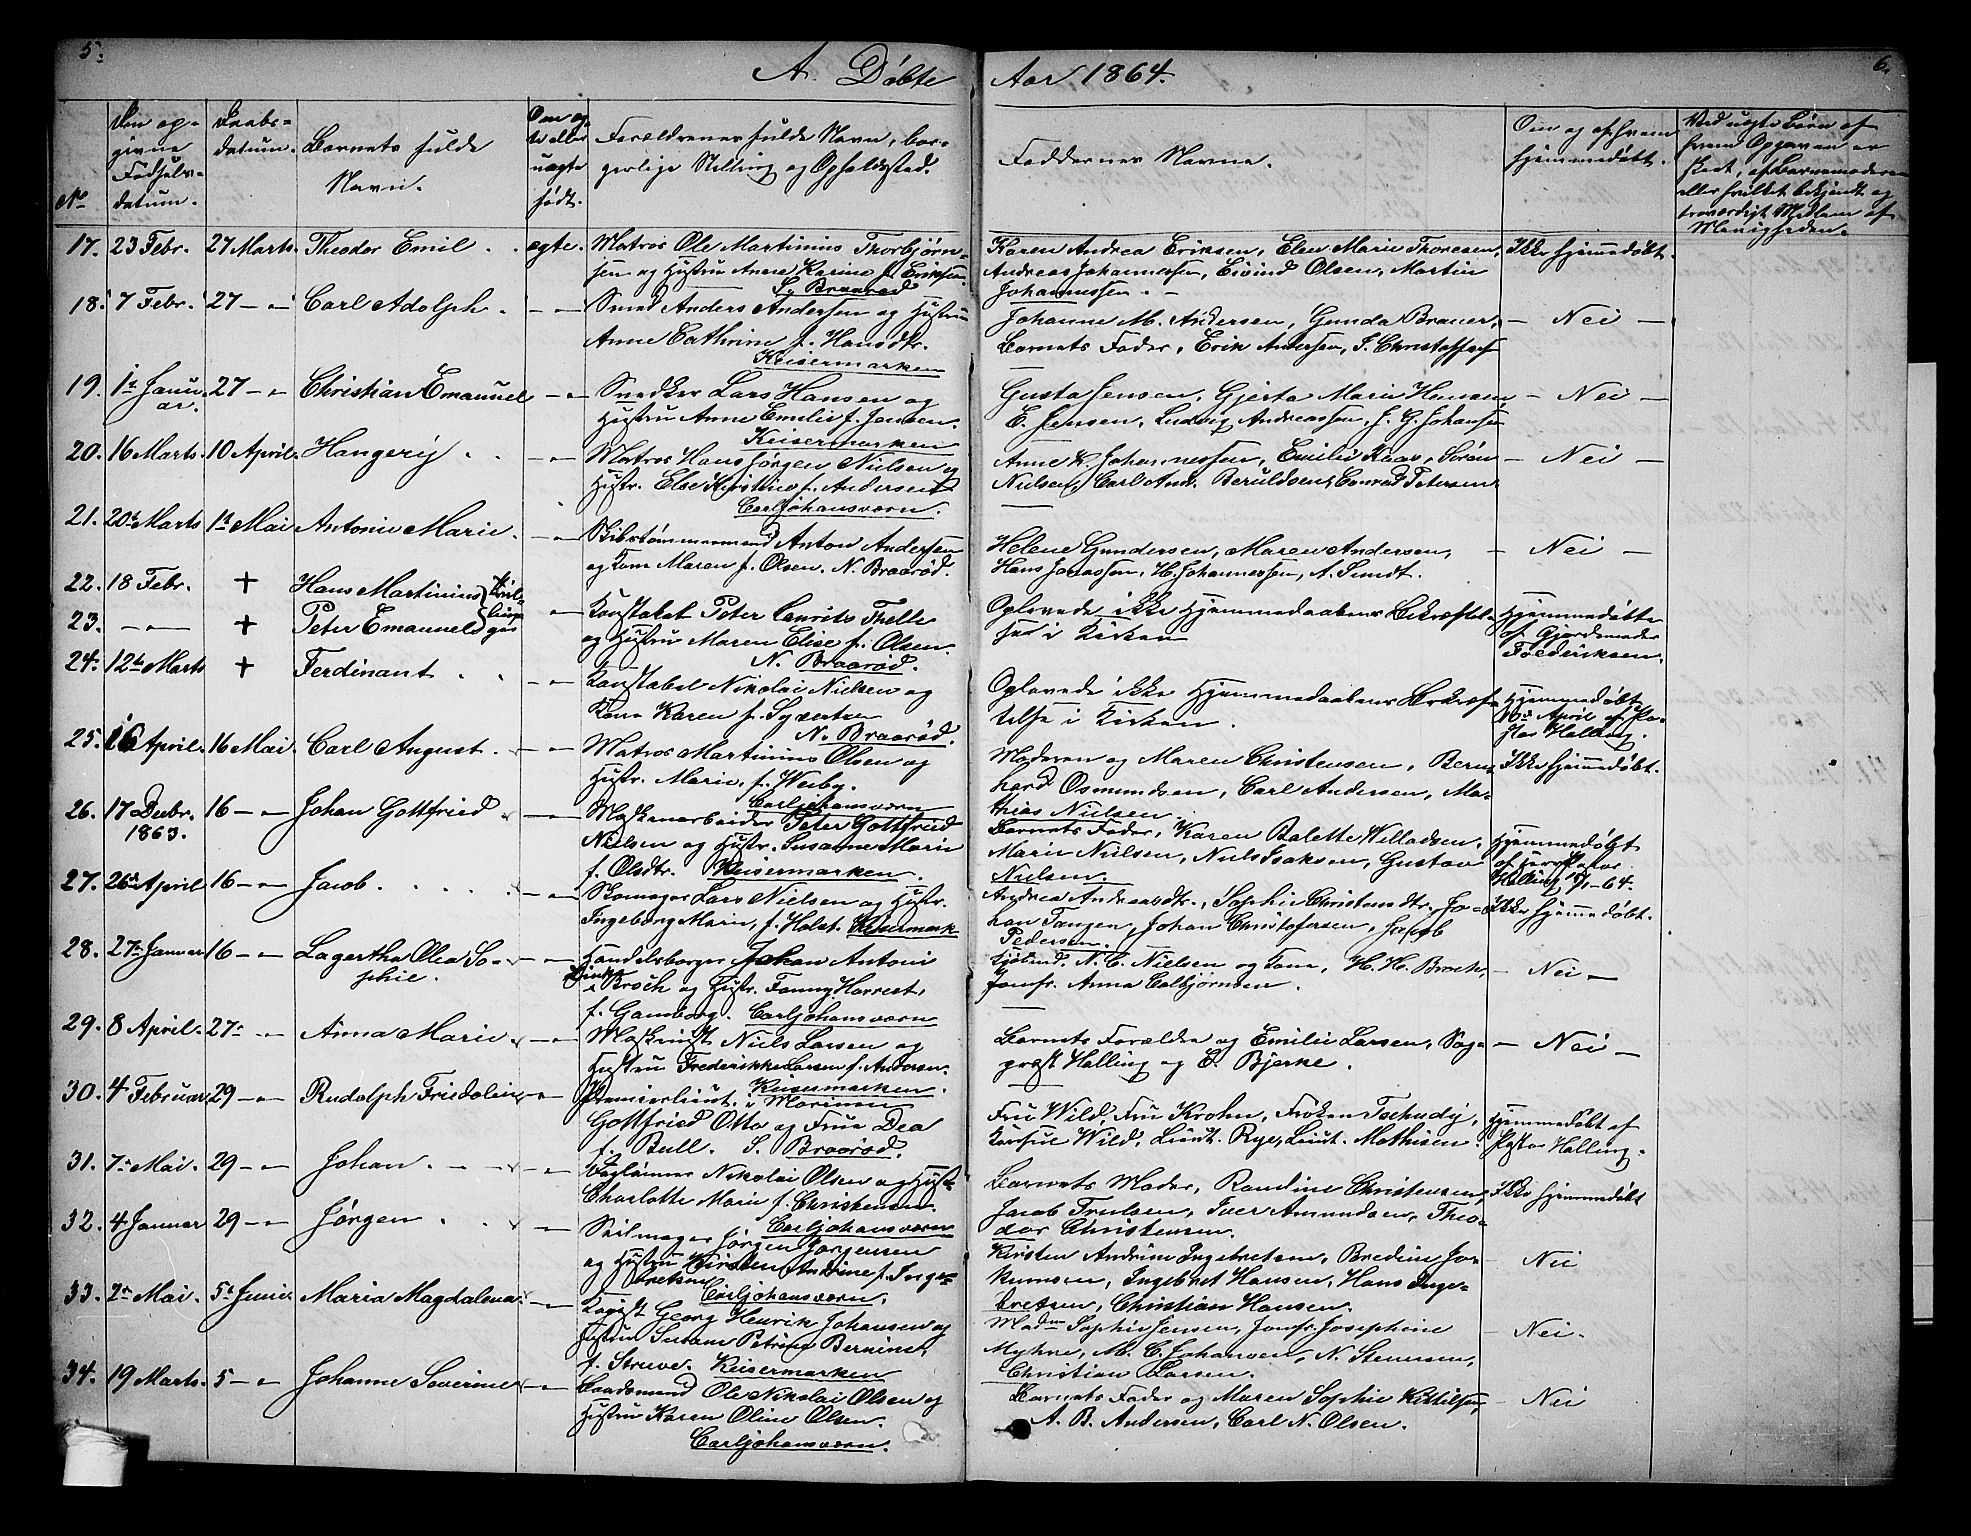 5.
A. Døbte
Aar 1864.
6.
No
Den op-
givne
Fødsels-
datum.
Daabs-
datum.
Barnets fulde
Navn.
Om æg-
te eller
uægte
født.
Forældrenes fulde Navn, bor-
gerlige Stilling og Opholdssted.
Faddernes Navne.
Om og af hvem
hjemmedøbt.
Ved uægte Børn af
hvem Opgaven er
skeet, af Barnemoderen
eller hvilket bekjendt og
troværdigt Medlem af
Menigheden.
17. 23 Febr. 27 Marts. Theodor Emil . . ægte. Matros Ole Martinius Thorbjørn-
sen og Hustru Anne Karine f. Eriksen.
S. Braarød
Karen Andrea Eriksen, Elen Marie Thoresen,
Andreas Johannessen, Eivind Olsen, Martin
Johannessen. –
Ikke hjemmedøbt.
18. 7 Febr. 27 – " Carl Adolph . – " – Smed Anders Andersen og Hustru
Anne Cathrine f. Hansdtr.
Keisermarken
Johanne M. Andersen, Gunda Brauer,
Barnets Fader, Erik Andersen, S. Christoffersen
– Nei –
19. 1ste Janu-
ar. 27 – " Christian Emanuel – " Snedker Lars Hansen og
Hustru Anne Emilie f. Jensen.
Keisermarken
Gusta Jensen, Gjerta Marie Hansen,
E. Jensen, Ludvig Andreassen, J. G. Johansen
– Nei –
20. 16 Marts. 10 April. Hangerij . . – " – Matros Hans Jørgen Nielsen og
Hustr. Else Kirstine f. Andersen
Carljohansværn.
Anne K. Johannessen, Emilie Kaas, Søren
Nielsen, Carl And. Beruldsen, Conrad Petersen
– Nei –
21. 20de Marts 1ste Mai Antonie Marie . – " – Skibstømmermand Anton Andersen
og Kone Maren f. Olsen. N. Braarød.
Helene Gundersen, Maren Andersen,
Hans Jonassen, H. Johannessen, A. Sundt.
– Nei –
22. 18 Febr. + Hans Martinius
23. – " – + Peter Emanuel
Tvil-
lin-
ger
– " Konstabel Peter Lauritz Thelle
og Hustru Maren Elise f. Olsen.
N. Braarød.
Oplevede ikke Hjemmedaabens Bekræftel-
se i Kirken
Hjemmedøbte
af Gjordemoder
Frederiksen.
24. 12te Marts + Ferdinant . . – " – Konstabel Nikolai Nielsen og
Kone Karen f. Syvertsen
N. Braarød.
Oplevede ikke Hjemmedaabens Bekræf-
telse i Kirken.
Hjemmedøbt
10de April af Pa-
stor Halling.
25. 16 April. 16 Mai. Carl August . – " – Matros Martinius Olsen og
Hustr. Marie, f. Weiby.
Carljohansværn
Moderen og Maren Christensen, Bern-
hard Osmundsen, Carl Andersen, Ma-
thias Nielsen.
Ikke hjemmedøbt.
26. 17 Decbr.
1863. 16 – " – Johan Gottfried – " – Maskinarbeider Peter Gottfried
Nielsen og Hustr. Susanne Marie
f. Olsdtr. Keisermarken.
Barnets Fader, Karen Bolette Willadsen,
Marie Nielsen, Niels Isaksen, Gustav
Nielsen.
Hjemmedøbt
af Hr. Pastor
Halling – 64.
27. 26de April 16 – " Jacob. . . . . – " – Skomager Lars Nielsen og Hustr.
Ingeborg Marie, f. Holst. Keisermark
Andrea Andreasdtr., Sophie Christensdtr. Jo-
han Tangen, Johan Christofersen, Jacob
Pedersen.
Ikke hjemmedøbt.
28. 27de Januar 16 – " Lagertha Olea So-
phie. – " Handelsborger Johan Antoni
Broch og Hustr. Fanny Harriet,
f. Gamborg. Carljohansværn
Kjøbmd. N. C. Nielsen og Kone, H. H. Broch,
Jomfr. Anna Colbjørnsen.
– Nei –
29. 8 April. 27 – " Anna Marie. – " – Maskinist Niels Larsen og
Hustru Frederikke Larsen f. Andersen.
Keisermarken.
Barnets Forældre og Emilie Larsen, Sog-
præst Halling og E. Bjerke.
– Nei –
30. 4 Februar 29 – " Rudolph Fridolin – " – Premierlieut. i Marinen
Gottfried Otto og Frue Dea
f. Bull. S. Braarød.
Fru Wild, Fru Krohn, Frøken Tschudy,
Konsul Wild, Lieut. Rye, Lieut. Mathisen.
Hjemmedøbt af
Pastor Halling.
31. 7de Mai. 29 – " Johan. – " – Daglønner Nikolai Olsen og Hust-
Charlotte Marie f. Christensen.
Carljohansværn
Barnets Moder, Randine Christensen,
Jacob Trulsen, Iver Amundsen, Theo-
dor Christensen.
Ikke hjemmedøbt
32. 4 Januar 29 – " Jørgen . . – " Seilmager Jørgen Jørgensen
og Hustru Kirsten Andrine f. Inge-
bretsen Carljohansværn.
Kirsten Andrine Ingebretsen, Bredine Jo-
kumsen, Ingebret Hansen, Hans Inge-
bretsen, Christian Hansen.
Nei
33. 2den Mai. 5te Juni. Maria Magdalena. – " – Kopist Georg Henrik Johansen og
Hustru Susane Petrine Bernine,
f. Struve. Keisermarken
Madm Sophie Jensen, Jomfr. Josephine
Myhre, M. C. Johansen, N. Stenersen,
Christian Larsen.
– Nei.
34. 19 Marts. 5 – " Johanne Severine – " – Baadsmand Ole Nikolai Olsen og
Hustru Karen Oline Olsen.
Carljohansværn.
Barnets Fader og Maren Sophie Kittilsen,
A. B. Andersen, Carl N. Olsen.
– Nei